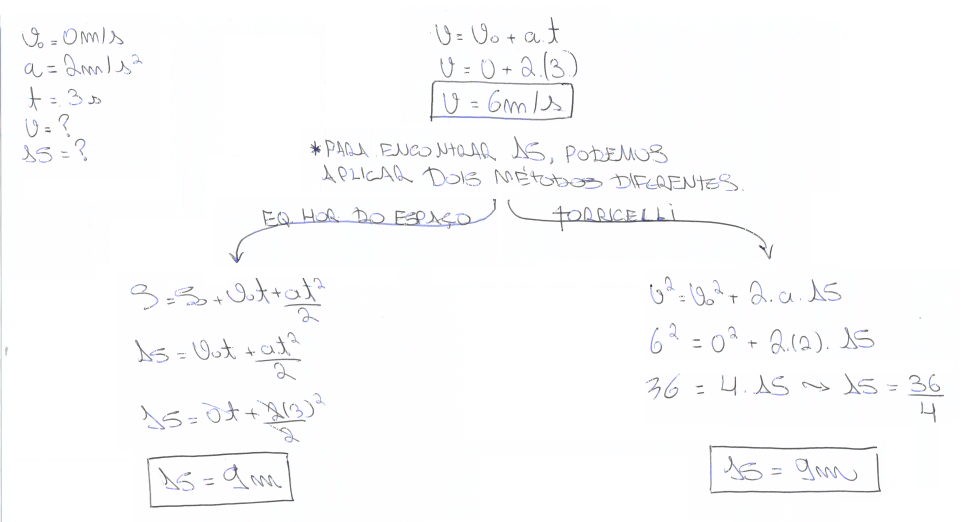 v₀ = 0m/s
a = 2m/s²
t = 3s
v = ?
ΔS = ?
v = v₀ + a.t
v = 0 + 2.(3)
v = 6m/s
*PARA ENCONTRAR ΔS, PODEMOS
APLICAR DOIS MÉTODOS DIFERENTES.
EQ HOR DO ESPAÇO
S = S₀ + v₀t + at²/2
ΔS = v₀t + at²/2
ΔS = 0t + 2(3)²/2
ΔS = 9m
TORRICELLI
v² = v₀² + 2.a.ΔS
6² = 0² + 2.(2). ΔS
36 = 4.ΔS ~> ΔS = 36/4
ΔS = 9m